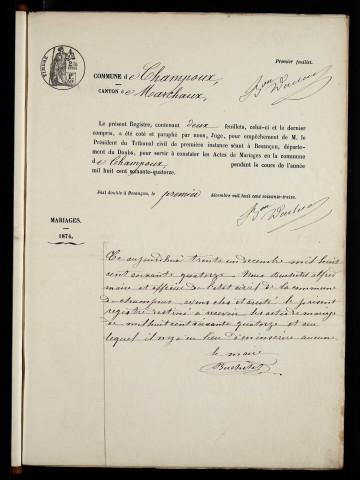 Premier feuillet.
COMMUNE d e Champoux,
CANTON d e Marchaux,
Le présent Registre, contenant deux feuillets, celui-ci et le dernier
compris, a été coté et paraphé par nous, Juge, pour empêchement de M. le
Président du Tribunal civil de première instance séant à Besançon, département
du Doubs, pour servir à constater les Actes de Mariages en la commune
d e Champoux, pendant le cours de l'année
mil huit cent soixante-quatorze.
Fait double à Besançon, le premier décembre mil huit cent soixante-treize.
MARIAGES.
1874.
Ce aujourdhui trente un decembre mil huit
cent soixante quatorze Nous Buchotet alfred
maire et officier de l'etat civil de la commune
de champoux avons clos et arrêté le présent
registre destiné a recevoir les actes de mariage
de mil huit cent soixante quatorze et sur
lequel il n'y a eu lieu d'en inscrire aucune
le maire